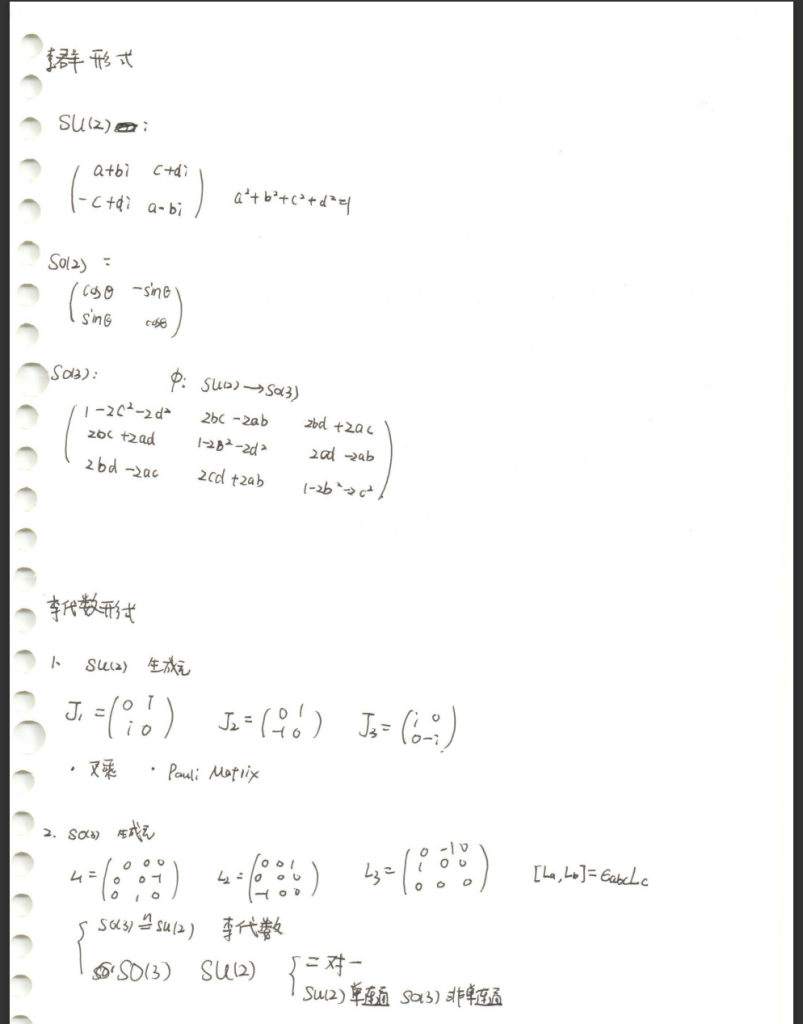 李群形式
SU(2):
( a+bi c+di
-c+di a-bi ) a²+b²+c²+d²=1
SO(2):
( cosθ -sinθ
sinθ cosθ )
SO(3): φ: SU(2)→SO(3)
( 1-2c²-2d² 2bc-2ab 2bd+2ac
2bc+2ad 1-2b²-2d² 2cd-2ab
2bd-2ac 2cd+2ab 1-2b²-2c² )
李代数形式
1、 SU(2) 生成元
J₁=( 0 i
i 0 ) J₂=( 0 1
-1 0 ) J₃=( i 0
0 -i )
· 叉乘 · Pauli Matrix
2. SO(3) 生成元
L₁=( 0 0 0
0 0 -1
0 1 0 ) L₂=( 0 0 1
0 0 0
-1 0 0 ) L₃=( 0 -1 0
1 0 0
0 0 0 ) [La,Lb]=εabcLc
SO(3) ≅ SU(2) 李代数
SO(3) SU(2) { 二对一
SU(2) 单连通 SO(3) 非单连通